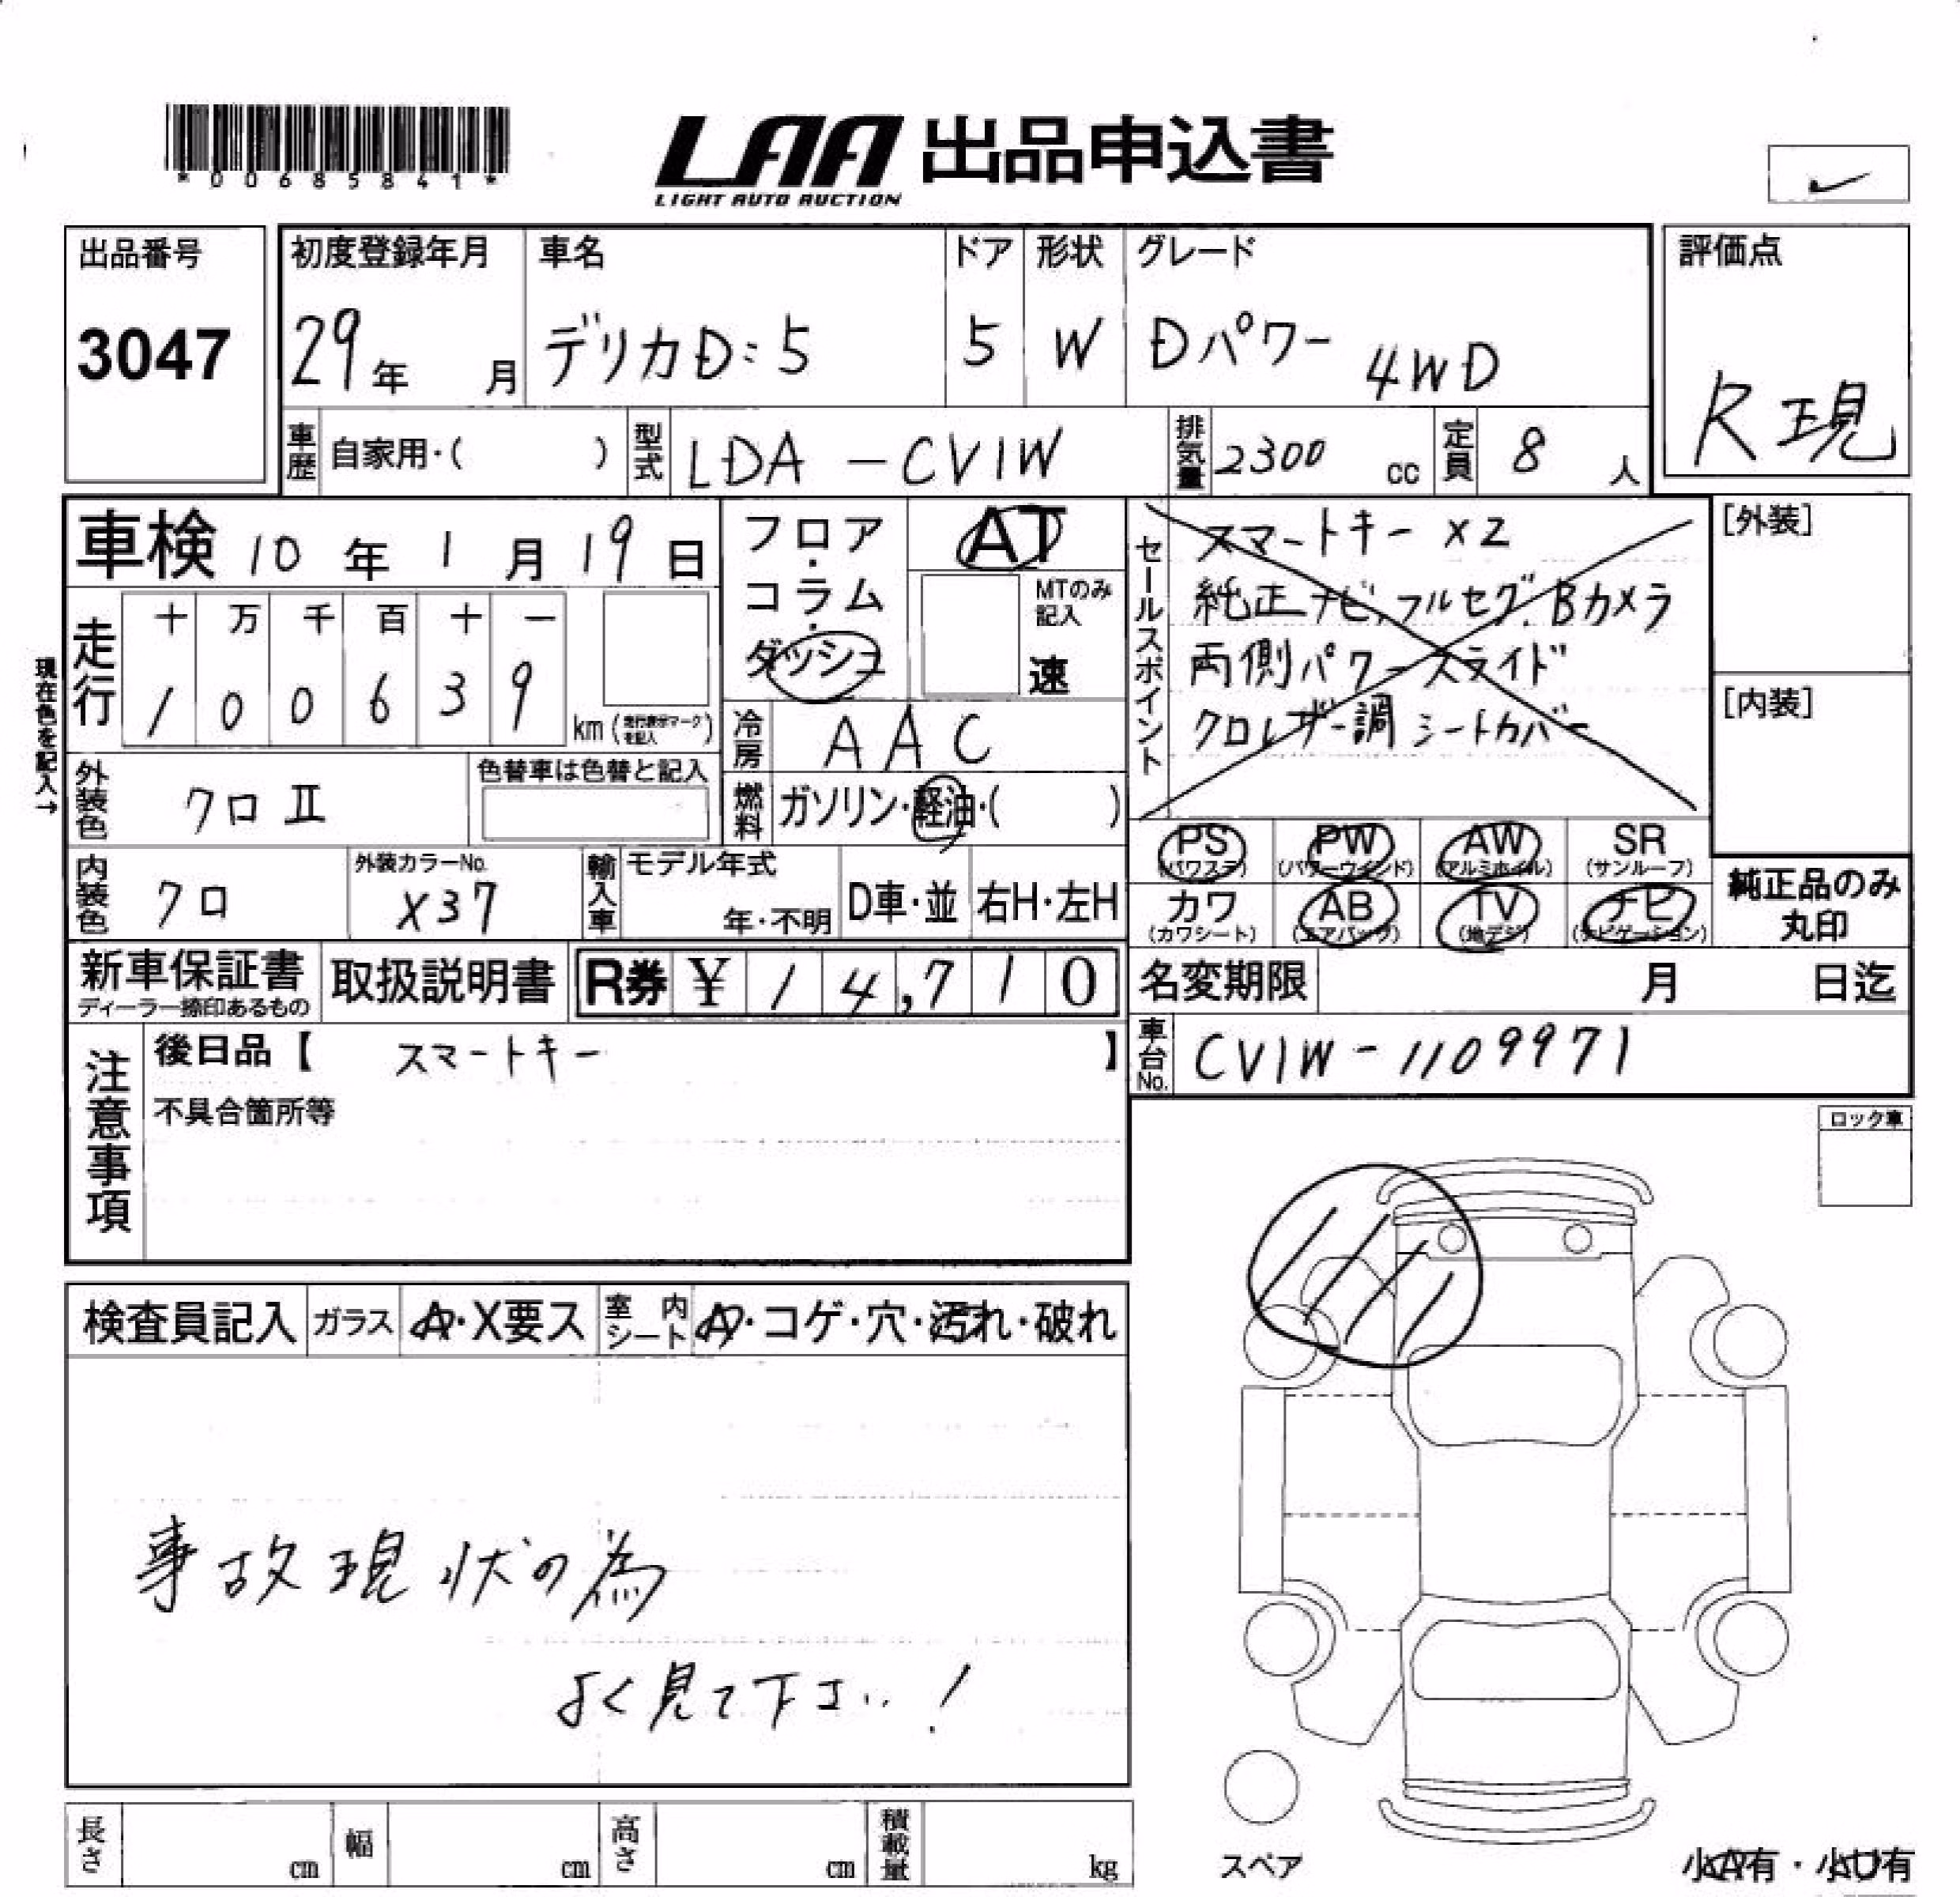 *00685841*
LAA 出品申込書
LIGHT AUTO AUCTION
出品番号
3047
初度登録年月
29年 月
車名
デリカD:5
ドア
5
形状
W
グレード
Dパワー 4WD
評価点
R 現
車歴 自家用・( )
型式 LDA-CV1W
排気量 2300 cc
定員 8 人
車検 10年 1月 19日
現在色を記入→
走行
十 万 千 百 十 一
1 0 0 6 3 9
km (走行表示マークを記入)
フロア・コラム・ダッシュ
AT
MTのみ記入
速
冷房 AAC
燃料 ガソリン・軽油・( )
セールスポイント
スマートキー ×2
純正ナビ,フルセグ,Bカメラ
両側パワースライド
クロレザー調シートカバー
[外装]
[内装]
外装色 クロⅡ
色替車は色替と記入
内装色 クロ
外装カラーNo.
X37
輸入車
モデル年式
年・不明
D車・並
右H・左H
PS (パワステ)
PW (パワーウインド)
AW (アルミホイル)
SR (サンルーフ)
カワ (カワシート)
AB (エアバッグ)
TV (地デジ)
ナビ (ナビゲーション)
純正品のみ
丸印
新車保証書
ディーラー捺印あるもの
取扱説明書
R券 ¥14,710
名変期限 月 日迄
車台No. CV1W-1109971
注意事項
後日品【 スマートキー 】
不具合箇所等
ロック車
検査員記入
ガラス
A・X要ス
室内シート
・コゲ・穴・汚れ・破れ
事故現状の為
よく見て下さい!
長さ cm
幅 cm
高さ cm
積載量 kg
スペア
小A有・小U有